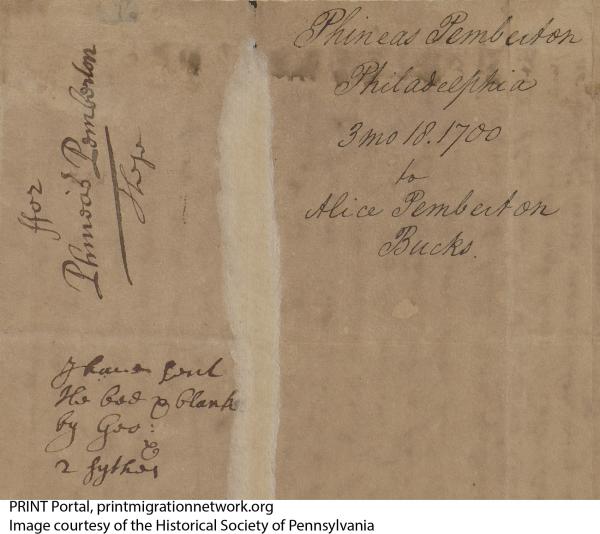 ffor
Phineas Pemberton
These
I have sent
the bed & blank
by Geo:
&
2 sythes
Phineas Pemberton
Philadelphia
3 mo 18. 1700
to
Alice Pemberton
Bucks.
PRINT Portal, printmigrationnetwork.org
Image courtesy of the Historical Society of Pennsylvania